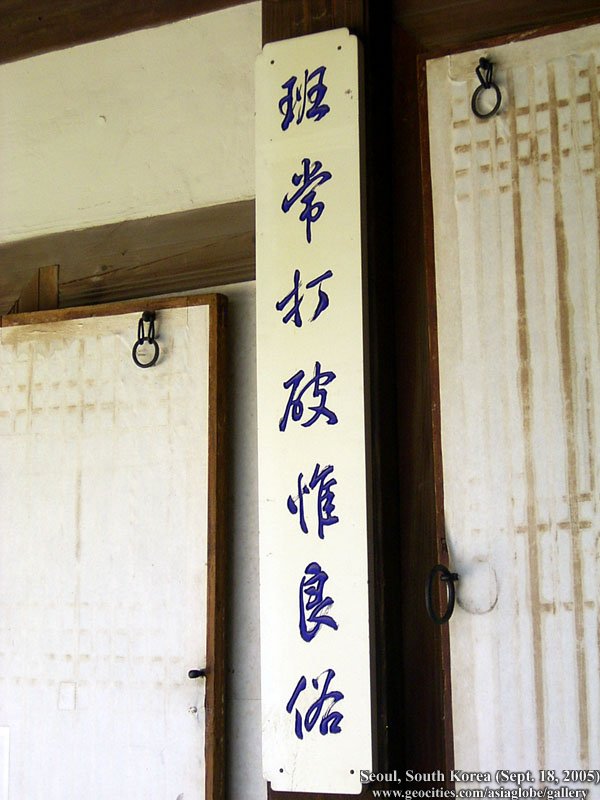 班常打破惟良俗
Seoul, South Korea (Sept. 18, 2005)
www.geocities.com/asiaglobe/gallery